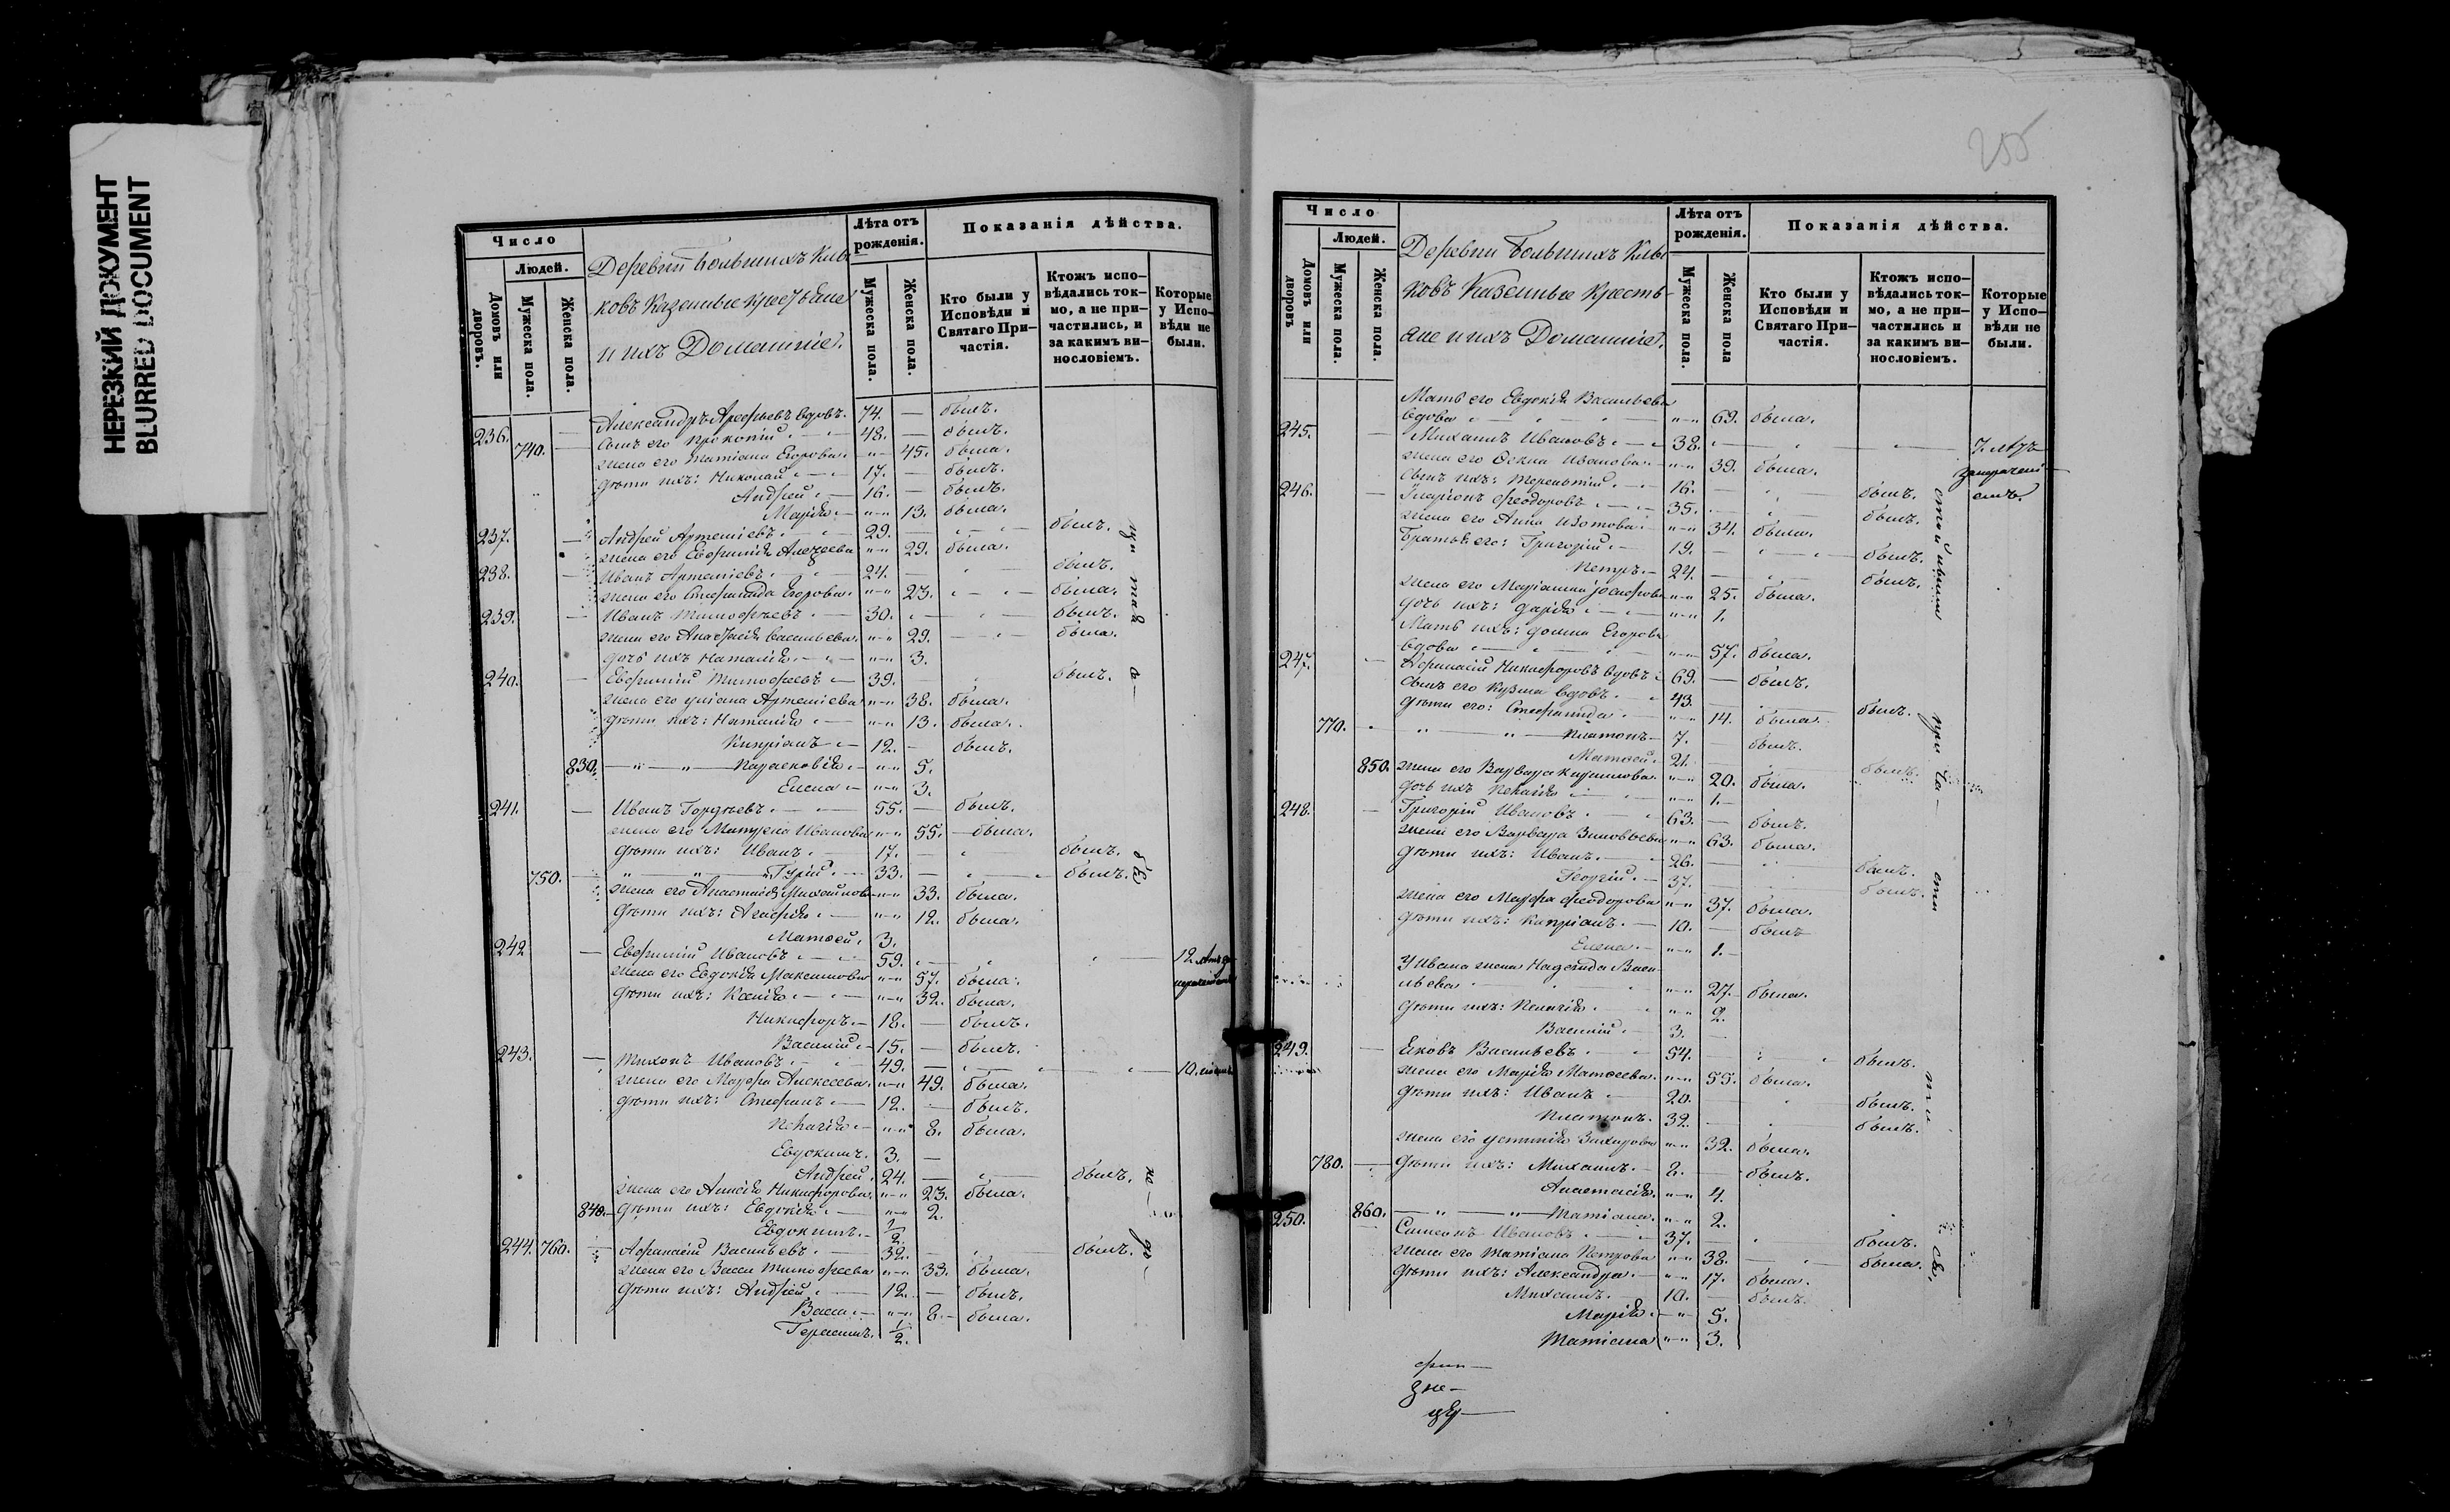 НЕРЕЗКИЙ ДОКУМЕНТ
BLURRED DOCUMENT
Число
Людей.
Домовъ или дворовъ.
Мужеска пола.
Женска пола.
Деревни Большихъ Кив
ковъ Казенные крестьяне
и ихъ Домашніе.
Лѣта отъ рожденія.
Мужеска пола.
Женска пола.
Показанія дѣйства.
Кто были у Исповѣди и Святаго При-частія.
Ктожъ испо-вѣдались ток-мо, а не при-частились, и за какимъ ви-нословіемъ.
Которые у Испо-вѣди не были.
236. Александръ Арефьевъ вдовъ. 74. — былъ.
740. Сынъ его Прокопій 48. — былъ.
жена его Татіана Егорова „—„ 45. была.
дѣти ихъ: Николай 17. — былъ.
Андрей 16. — былъ.
Марія „—„ 13. была.
237. Андрей Артеміевъ 29. — былъ.
жена его Евфимія „—„ 29. была.
238. Иванъ Артеміевъ 24. — былъ.
жена его Степанида Егорова „—„ 23. была.
239. Иванъ Тимофѣевъ 30. былъ.
жена его Анастасія Васильева „—„ 29. была.
дочь ихъ Наталія „—„ 3.
240. Евфимій Тимофеевъ 39. былъ.
жена его Уліана Артеміева „—„ 38. была.
дѣти ихъ: Наталія „—„ 13. была.
Кипріанъ 12. — былъ.
830. Парасковія „—„ 5.
Елена „—„ 3.
241. Иванъ Гордѣевъ 55. — былъ.
жена его Матрена Иванова „—„ 55. была.
дѣти ихъ: Иванъ 17. — былъ.
750. Гурій 33. — былъ.
жена его Анастасія Михайлова „—„ 33. была.
дѣти ихъ: Агафія „—„ 12. была.
Матѳей 3.
242 Евфимій Ивановъ 59. 12 лѣтъ
жена его Евдокія Максимова „—„ 57. была.
дѣти ихъ: Ксенія „—„ 32. была.
Никифоръ 18. — былъ.
Василій 15. — былъ.
243. Тихонъ Ивановъ 49. 10.
жена его Марфа Алексеева „—„ 49. была.
дѣти ихъ: Стефанъ 12. — былъ.
Пелагія „—„ 8. была.
Евдокимъ 3. —
Андрей 24. — былъ.
жена его Анисія Никифорова „—„ 23. была.
840. дѣти ихъ: Евдокія „—„ 2.
Евдокимъ ½.
244. 760. Афанасій Васильевъ 32. былъ.
жена его Васса Тимофеева „—„ 33. была.
дѣти ихъ: Андрей 12. — былъ.
Васса „—„ 8. была.
Герасимъ. ½.
255
Число
Людей.
Домовъ или дворовъ
Мужеска пола.
Женска пола.
Деревни Большихъ Кив
ковъ Казенные Кресть-
яне и ихъ Домашніе.
Лѣта отъ рожденія.
Мужеска пола.
Женска пола
Показанія дѣйства.
Кто были у Исповѣди и Святаго При-частія.
Ктожъ испо-вѣдались ток-мо, а не при-частились и за какимъ ви-нословіемъ.
Которые у Испо-вѣди не были.
Мать его Евдокія Васильева
вдова „—„ 69. была.
245. Михаилъ Ивановъ 38. 7. лѣтъ
жена его Ѳекла Иванова „—„ 39. была.
сынъ ихъ: Терентій 16. — былъ.
246. Иларіонъ Феодоровъ 35. — былъ.
жена его Анна Изотова „—„ 34. была.
Братья его: Григорій 19. — былъ.
Петръ. 24. — былъ.
жена его Маріамна Іосифова „—„ 25. была.
дочь ихъ: Дарія „—„ 1.
Мать ихъ: Домна Егорова
вдова „—„ 57. была.
247. Афанасій Никифоровъ вдовъ 69. — былъ.
Сынъ его Кузма вдовъ. 43. былъ.
дѣти его: Степанида „—„ 14. была.
770. Платонъ 7. — былъ.
Матѳей. 21. былъ.
850. жена его Варвара „—„ 20. была.
дочь ихъ Пелагія „—„ 1.
248. Григорій Ивановъ 63. — былъ.
жена его Варвара Зиновьева „—„ 63. была.
дѣти ихъ: Иванъ. 26. былъ.
Георгій. 37. былъ.
жена его Марфа Феодорова „—„ 37. была.
дѣти ихъ: Кипріанъ. 10. — былъ
Елена „—„ 1.
У Ивана жена Надежда Васи-
льева „—„ 27. была.
дѣти ихъ: Пелагія „—„ 2.
Василій 3.
249. Яковъ Васильевъ 54. былъ.
жена его Марія Матѳеева „—„ 55. была.
дѣти ихъ: Иванъ 20. былъ.
Платонъ. 32. былъ.
жена его Устинія Захарова „—„ 32. была.
780. дѣти ихъ: Михаилъ. 8. былъ.
Анастасія „—„ 4.
860. Татіана „—„ 2.
250. Симеонъ Ивановъ 37. былъ.
жена его Татіана Петрова „—„ 38. была.
дѣти ихъ: Александра „—„ 17. была.
Михаилъ. 10. — былъ.
Марія „—„ 5.
Татіана „—„ 3.